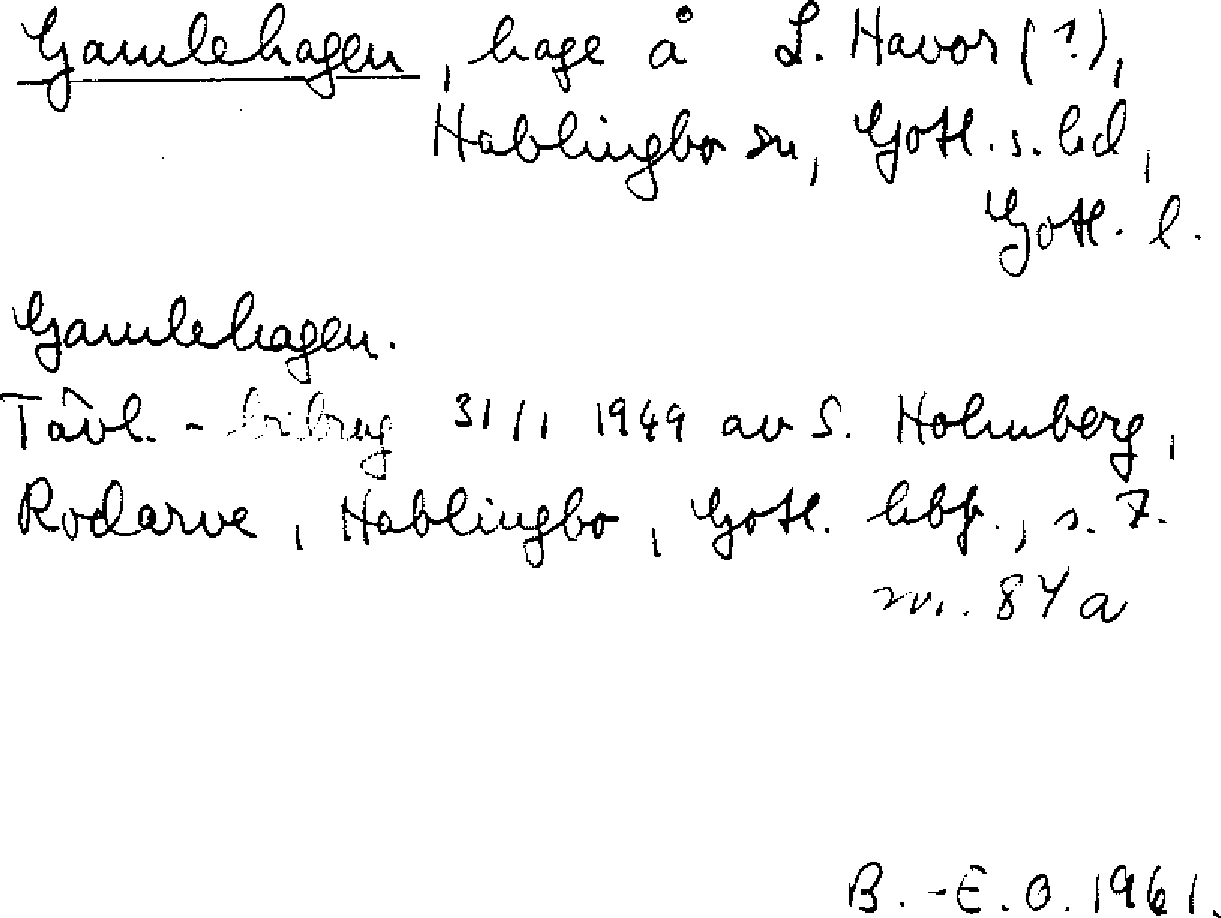 Gamlehagen, hage å L. Havor (?),
Hablingbo sn, Gotl. s. hd,
Gotl. l.
Gamlehagen.
Tävl.- 31/1 1949 av S. Holmberg,
Rodarve, Hablingbo, Gotl. hbf., s. 7.
nr. 84 a
B.-E. O. 1961.